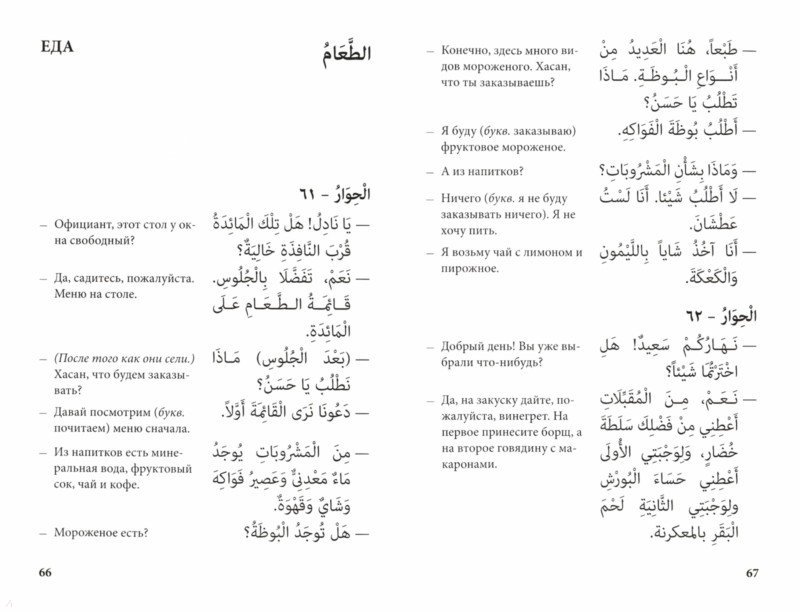 ЕДА
الطَّعَامُ
الْحِوَارُ – ٦١
— Официант, этот стол у ок-
на свободный?
— يَا نَادِلُ! هَلْ تِلْكَ الْمَائِدَةُ
قُرْبَ النَّافِذَةِ خَالِيَةٌ؟
— Да, садитесь, пожалуйста.
Меню на столе.
— نَعَمْ، تَفَضَّلَا بِالْجُلُوسِ.
قَائِمَةُ الطَّعَامِ عَلَى
الْمَائِدَةِ.
— (После того как они сели.)
Хасан, что будем заказы-
вать?
— (بَعْدَ الْجُلُوسِ) مَاذَا
نَطْلُبُ يَا حَسَنُ؟
— Давай посмотрим (букв.
почитаем) меню сначала.
— دَعُونَا نَرَى الْقَائِمَةَ أَوَّلاً.
— Из напитков есть мине-
ральная вода, фруктовый
сок, чай и кофе.
— مِنَ الْمَشْرُوبَاتِ يُوجَدُ
مَاءٌ مَعْدِنِيٌّ وَعَصِيرُ فَوَاكِهَ
وَشَايٌ وَقَهْوَةٌ.
— Мороженое есть?
— هَلْ تُوجَدُ الْبُوظَةُ؟
66
— Конечно, здесь много ви-
дов мороженого. Хасан,
что ты заказываешь?
— طَبْعاً، هُنَا الْعَدِيدُ مِنْ
أَنْوَاعِ الْبُوظَةِ. مَاذَا
تَطْلُبُ يَا حَسَنُ؟
— Я буду (букв. заказываю)
фруктовое мороженое.
— أَطْلُبُ بُوظَةَ الْفَوَاكِهِ.
— А из напитков?
— وَمَاذَا بِشَأْنِ الْمَشْرُوبَاتِ؟
— Ничего (букв. я не буду
заказывать ничего). Я не
хочу пить.
— لَا أَطْلُبُ شَيْئا. أَنَا لَسْتُ
عَطْشَانَ.
— Я возьму чай с лимоном и
пирожное.
— أَنَا آخُذُ شَاياً بِاللَّيْمُونِ
وَالْكَعْكَةَ.
الْحِوَارُ – ٦٢
— Добрый день! Вы уже вы-
брали что-нибудь?
— نَهَارُكُمْ سَعِيدٌ! هَلِ
اخْتَرْتُمَا شَيْئاً؟
— Да, на закуску дайте, по-
жалуйста, винегрет. На
первое принесите борщ, а
на второе говядину с ма-
каронами.
— نَعَمْ، مِنَ الْمُقَبَّلَاتِ
أَعْطِنِي مِنْ فَضْلِكَ سَلَطَةَ
خُضَارٍ، وَلِوَجْبَتِي الْأُولَى
أَعْطِنِي حَسَاءَ الْبُورْشِ
وَلِوَجْبَتِي الثَّانِيَةِ لَحْمَ
الْبَقَرِ بِالمعكرنة.
67